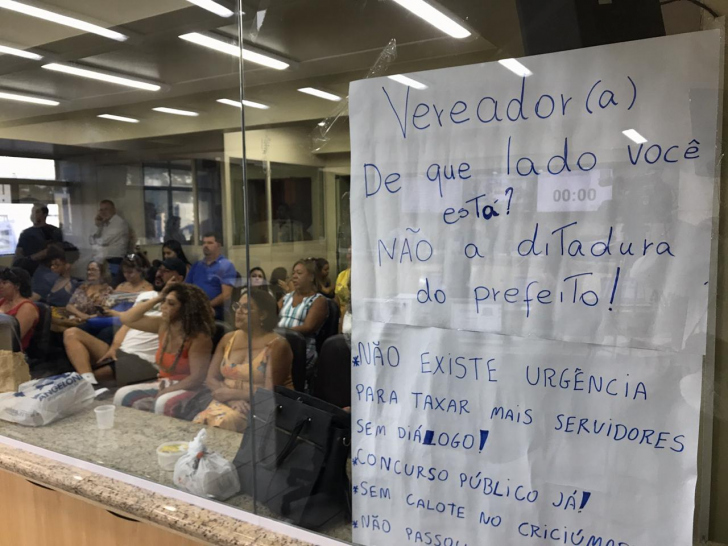 Vereador(a)
De que lado você
está?
NÃO a ditadura
do prefeito!
*NÃO EXISTE URGÊNCIA
PARA TAXAR MAIS SERVIDORES
SEM DIÁLOGO!
*CONCURSO PÚBLICO JÁ!
*SEM CALOTE NO
*NÃO
00:00
ANGELONI